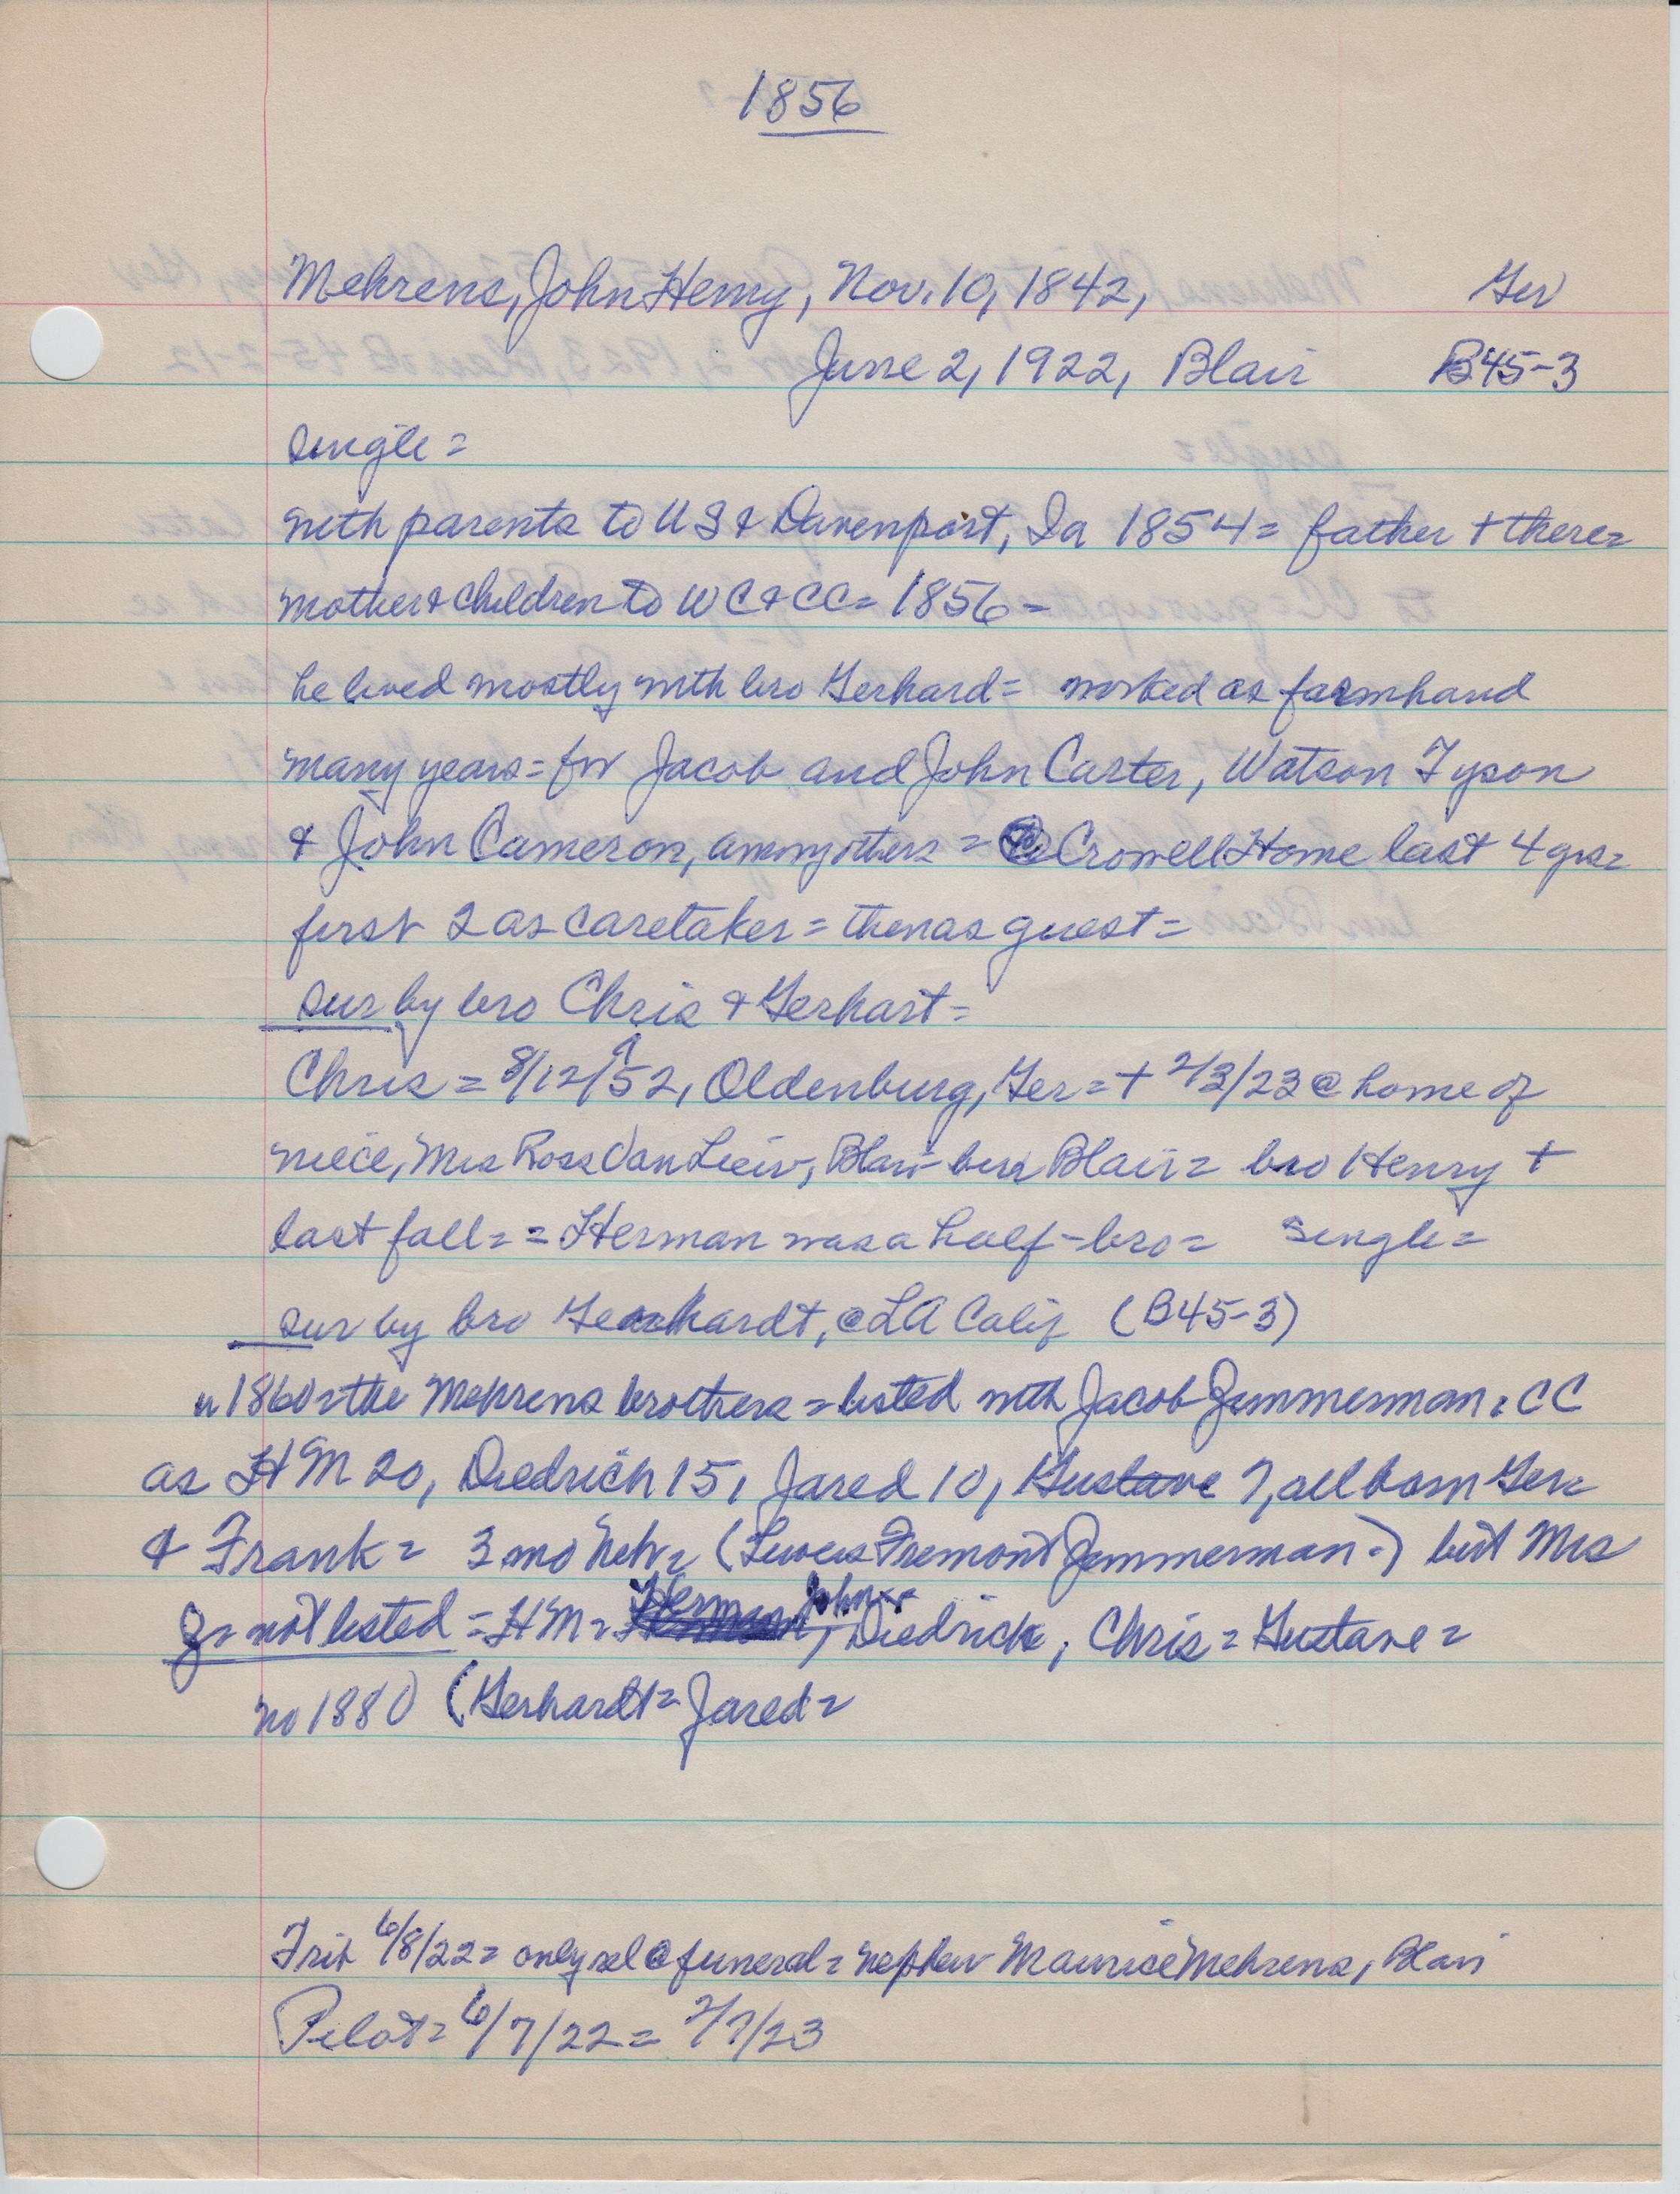 1856
Mehrens, John Henry, Nov. 10, 1842, Ger
June 2, 1922, Blair B45-3
single =
with parents to US & Davenport, Ia 1854 = father + there =
mother & children to WC & CC = 1856 =
he lived mostly with bro Gerhard = worked as farmhand
many years = for Jacob and John Carter, Watson Tyson
& John Cameron, among others = Crowell Home last 4 yrs =
first 2 as caretaker = then as guest =
sur by bro Chris & Gerhart =
Chris = 8/12/52, Oldenburg, Ger = + 2/3/23 @ home of
niece, Mrs Ross Van Leiv, Blair = bur Blair = bro Henry +
last fall = = Herman was a half-bro = single =
sur by bro Gerhardt, @ LA Calif (B45-3)
1860 = the Mehrens brothers = listed with Jacob Zimmerman, CC
as HM 20, Diedrich 15, Jared 10, Gustave 7, all born Ger =
& Frank = 3 mo Neb = (Lewis Fremont Zimmerman =) but Mrs
Z = not listed = HM = Herman John =, Diedrick, Chris = Gustave =
no 1880 (Gerhardt = Jared =
Trib 6/8/22 = only rel @ funeral = nephew Maurice Mehrens, Blair
Pilot = 6/7/22 = 2/7/23